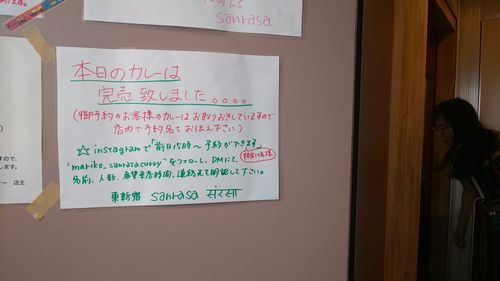 sanrasa
本日のカレーは
完売致しました。。。。
(御予約のお客様のカレーはお取りおきしていますので
店内で予約名をお伝え下さい)
☆instagramで「前日15時〜予約ができます」
"mariko_sanrasacurry"をフォローし、DMにて、
名前、人数、希望来店時間、連絡先を明記して下さい。
東新宿 sanrasa संरसा